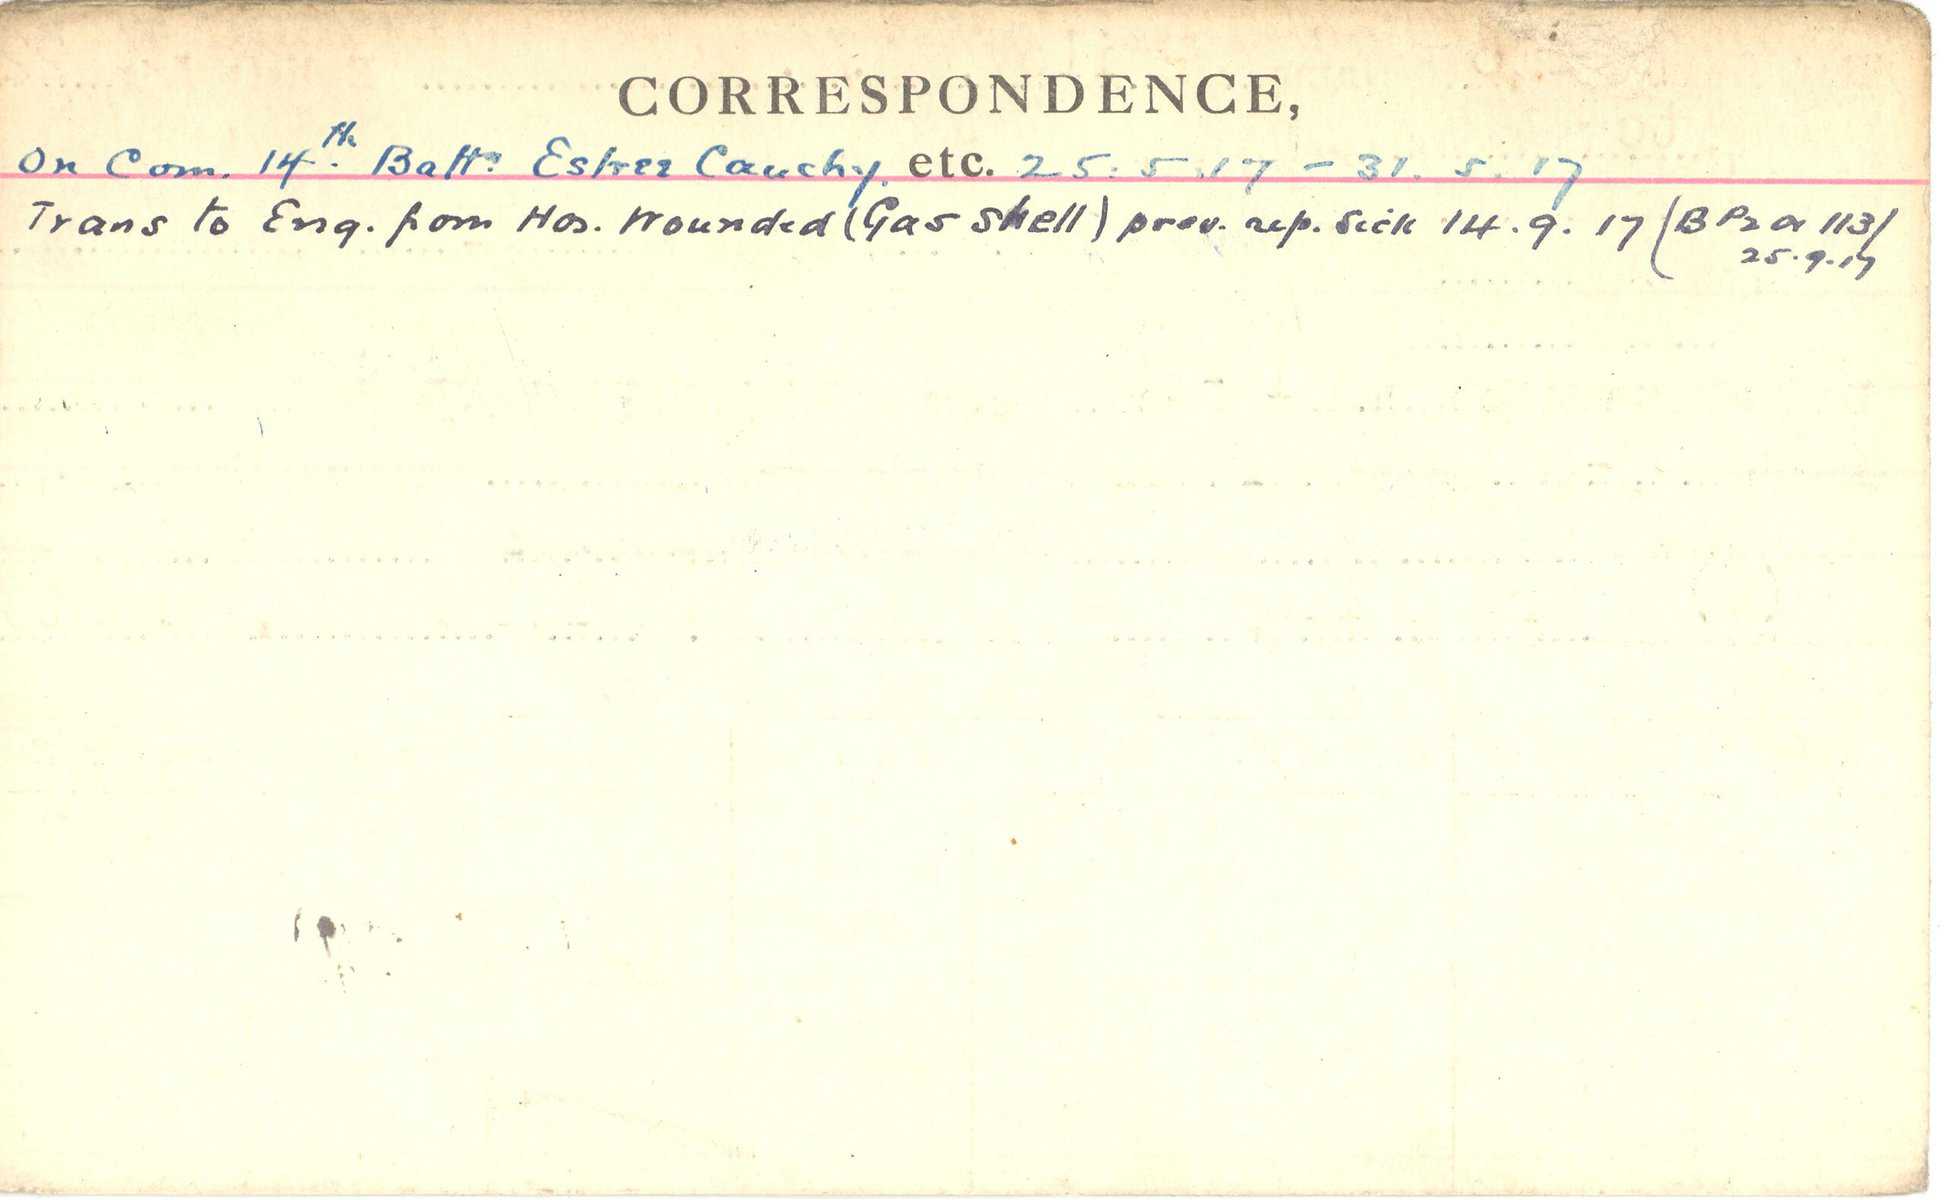 CORRESPONDENCE,
On Com. 14th. Battn Estree Cauchy. etc. 25.5.17 - 31.5.17
Trans to Eng. from Hos. Wounded (Gas shell) prev. rep. sick 14.9.17 (B P2 a 113/
25.9.17